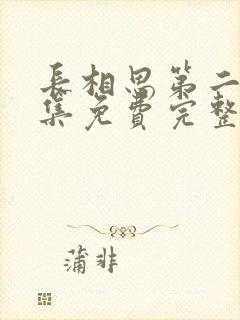 长相思第二
集免费完整
蒲非